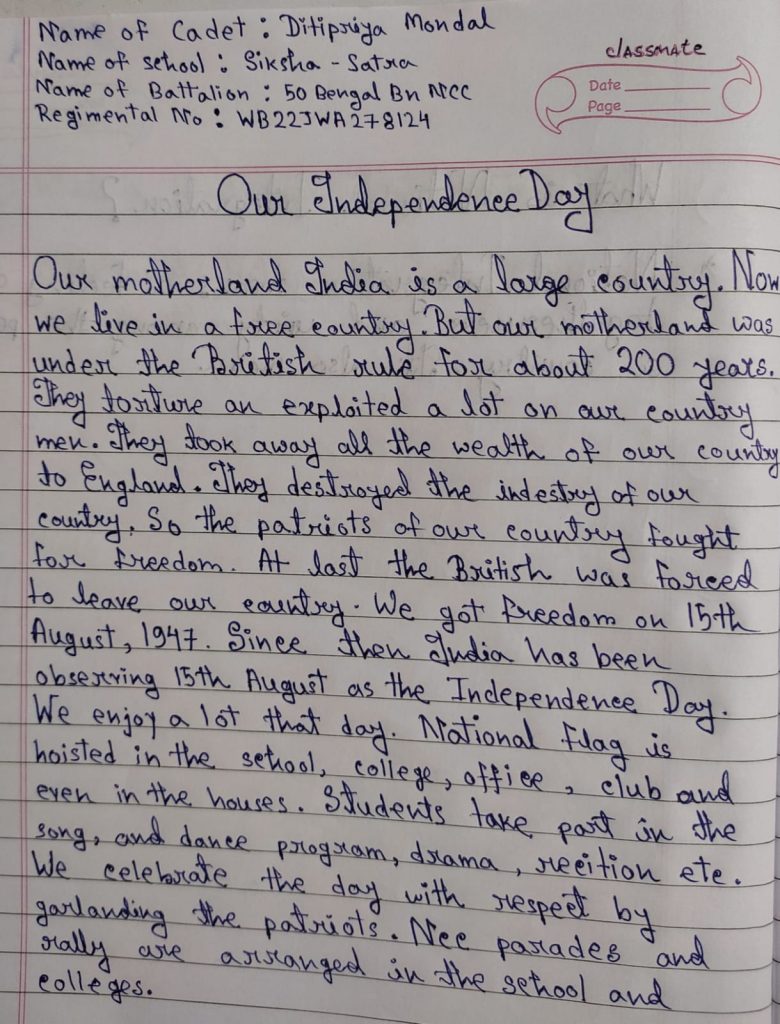 Name of Cadet : Ditipriya Mondal
Name of school : Siksha - Satra
Name of Battalion : 50 Bengal Bn NCC
Regimental No : WB22JWA278124
classmate
Date
Page
Our Independence Day
Our motherland India is a large country. Now
we live in a free country. But our motherland was
under the British rule for about 200 years.
They torture an exploited a lot on our country
men. They took away all the wealth of our country
to England. They destroyed the indestry of our
country. So the patriots of our country fought
for freedom. At last the British was forced
to leave our country. We got freedom on 15th
August, 1947. Since then India has been
observing 15th August as the Independence Day.
We enjoy a lot that day. National flag is
hoisted in the school, college, office, club and
even in the houses. Students take part in the
song, and dance program, drama, recition etc.
We celebrate the day with respect by
garlanding the patriots. Ncc parades and
rally are arranged in the school and
colleges.